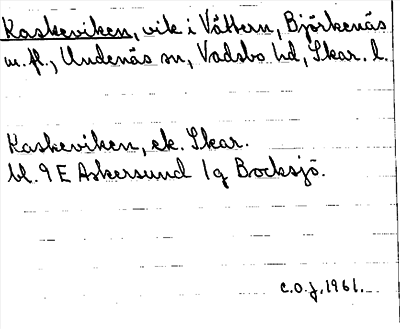 Kaskeviken, vik i Vättern, Björkenäs
m.fl., Undenäs sn, Vadsbo hd, Skar. l.
Kaskeviken, ek. Skar.
bl. 9 E Askersund 1g Bocksjö.
c.o.j. 1961.